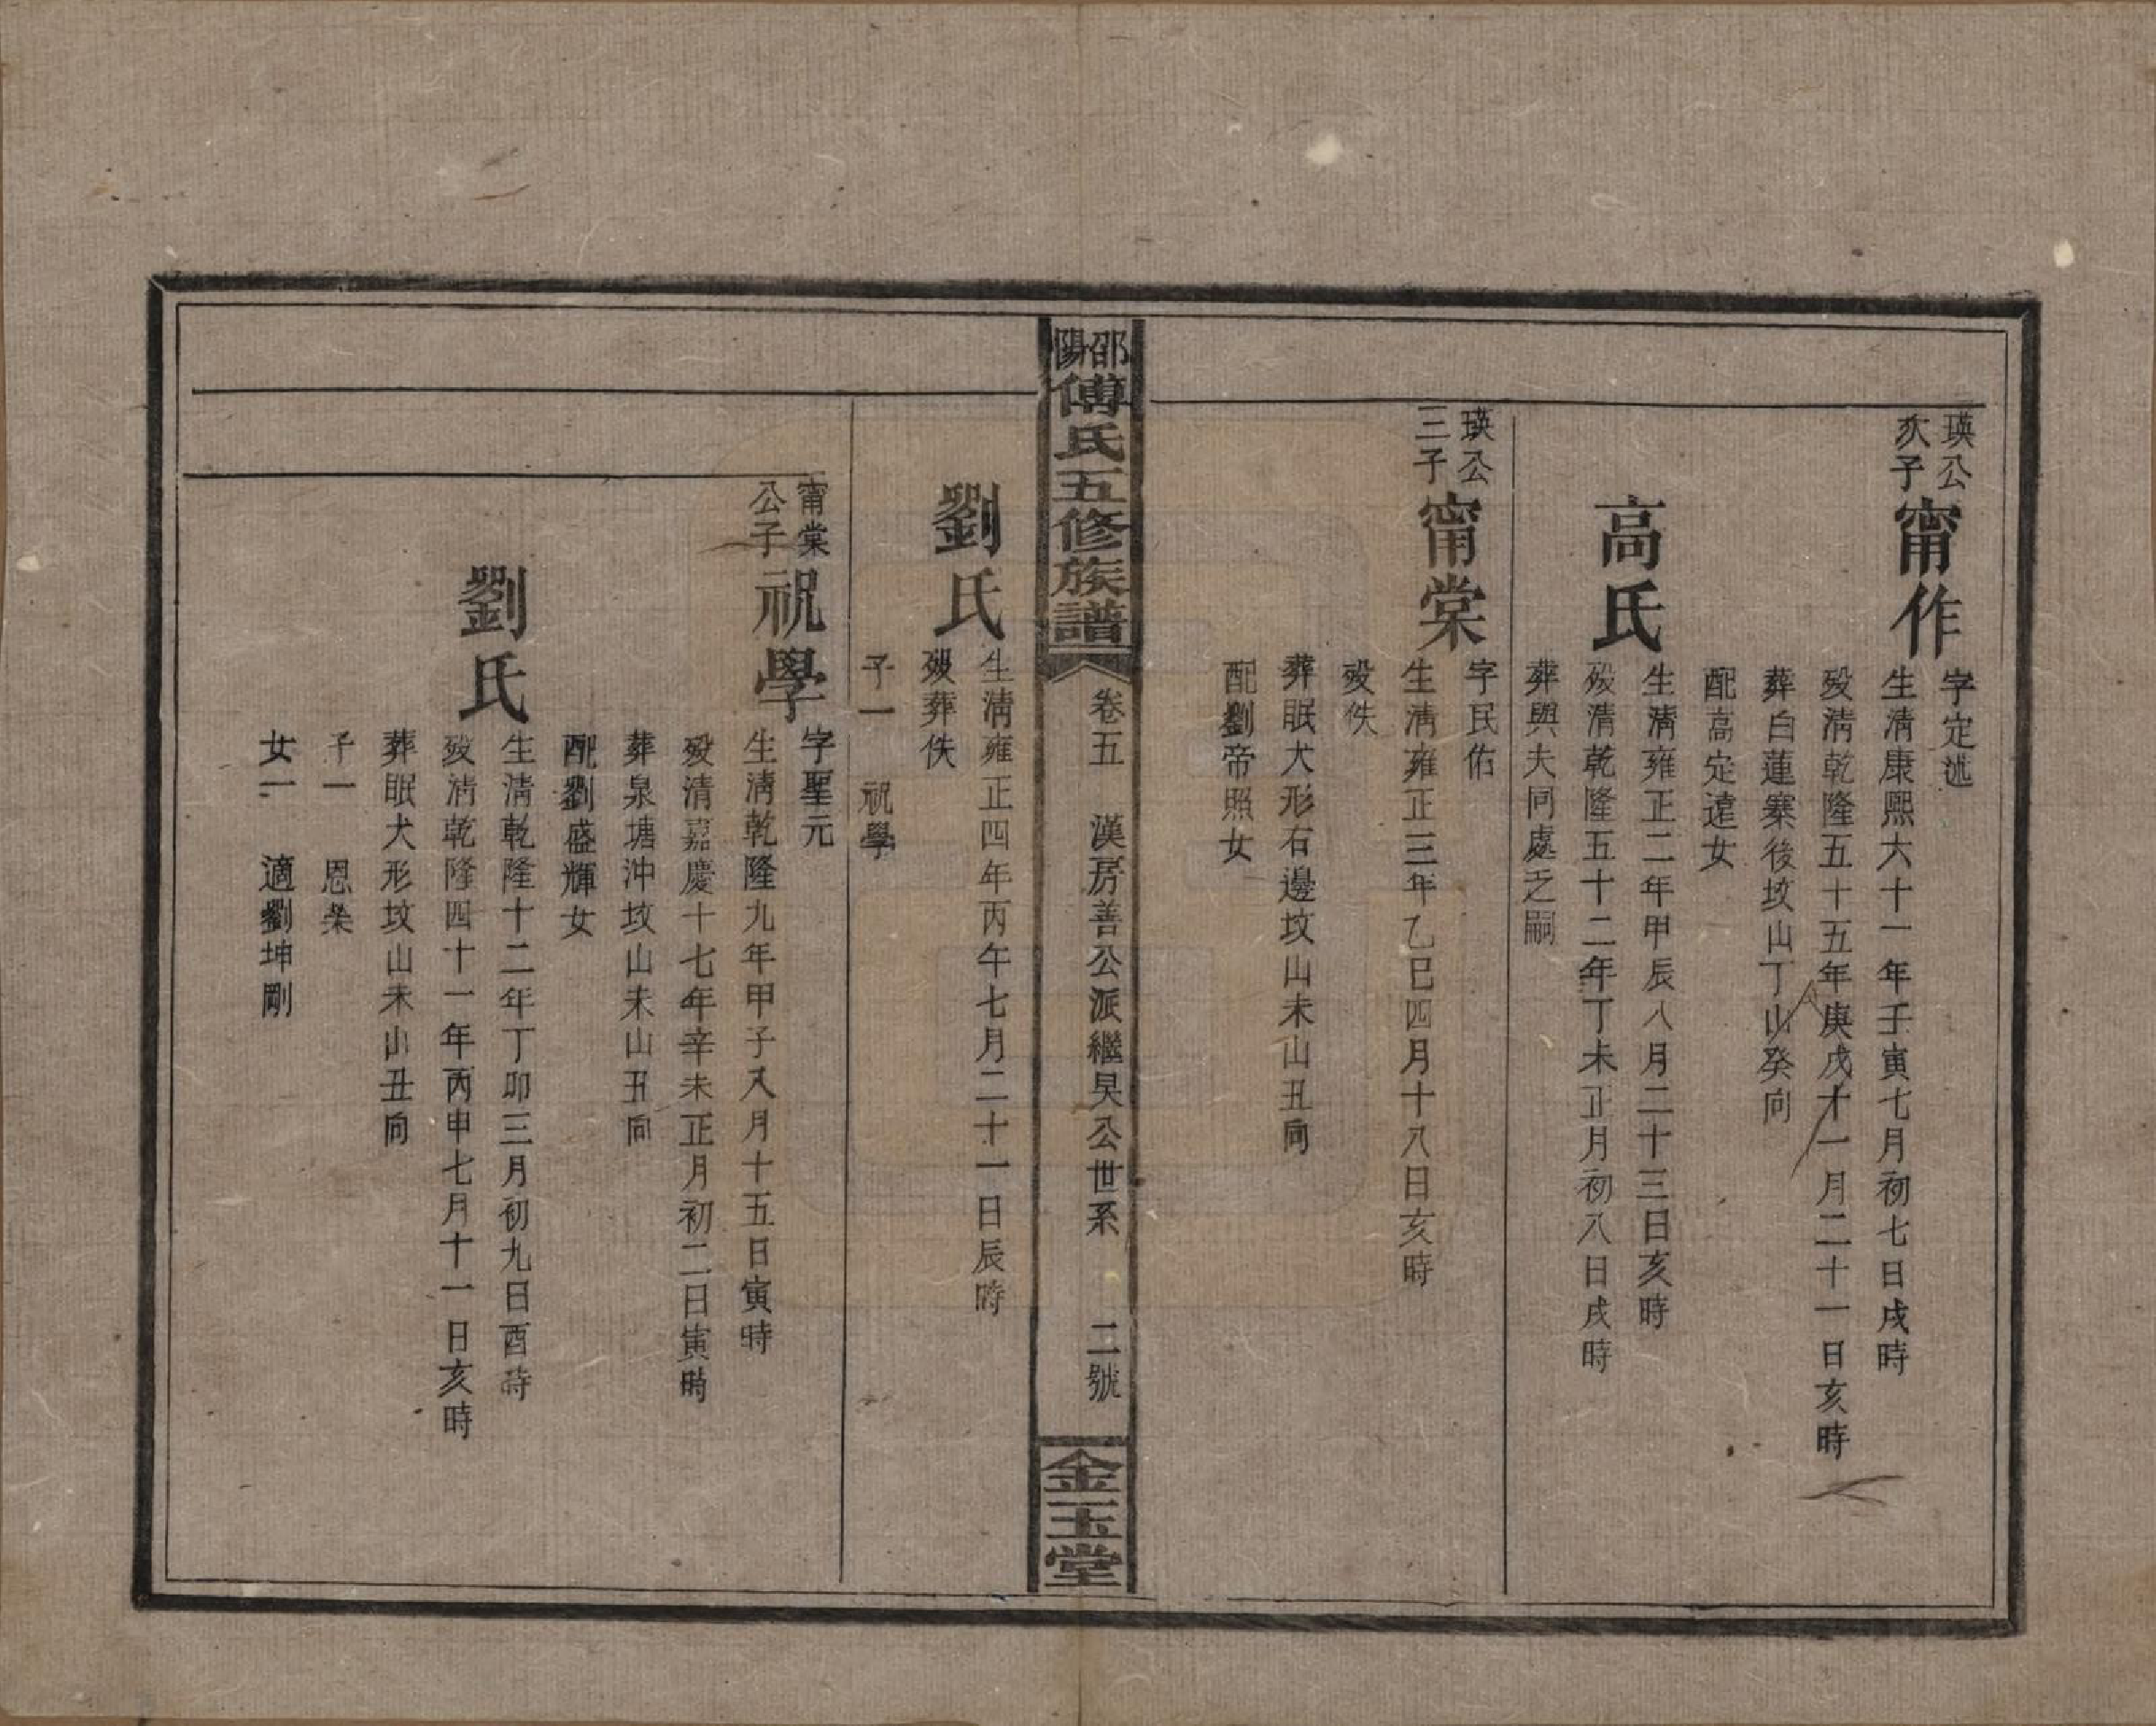 瑛公
次子
甯作
字定迯
生清康熙六十一年壬寅七月初七日戌時
歿清乾隆五十五年庚戌十一月二十一日亥時
葬白蓮寨後坟山丁山癸向
配高定遠女
高氏
生清雍正二年甲辰八月二十三日亥時
歿清乾隆五十二年丁未正月初八日戌時
葬與夫同處乏嗣
瑛公
三子
甯棠
字民佑
生清雍正三年乙巳四月十八日亥時
歿佚
葬眠犬形石邊坟山未山丑向
配劉帝照女
邵陽傅氏五修族譜
卷五 漢房善公派繼旲公世系 二號
金玉堂
劉氏
生清雍正四年丙午七月二十一日辰時
歿葬佚
子一 祝學
甯棠
公子
祝學
字聖元
生清乾隆九年甲子八月十五日寅時
歿清嘉慶十七年辛未正月初二日寅時
葬泉塘沖坟山未山丑向
配劉盛輝女
劉氏
生清乾隆十二年丁卯三月初九日酉時
歿清乾隆四十一年丙申七月十一日亥時
葬眠犬形坟山未山丑向
子一 恩榮
女一 適劉坤剛